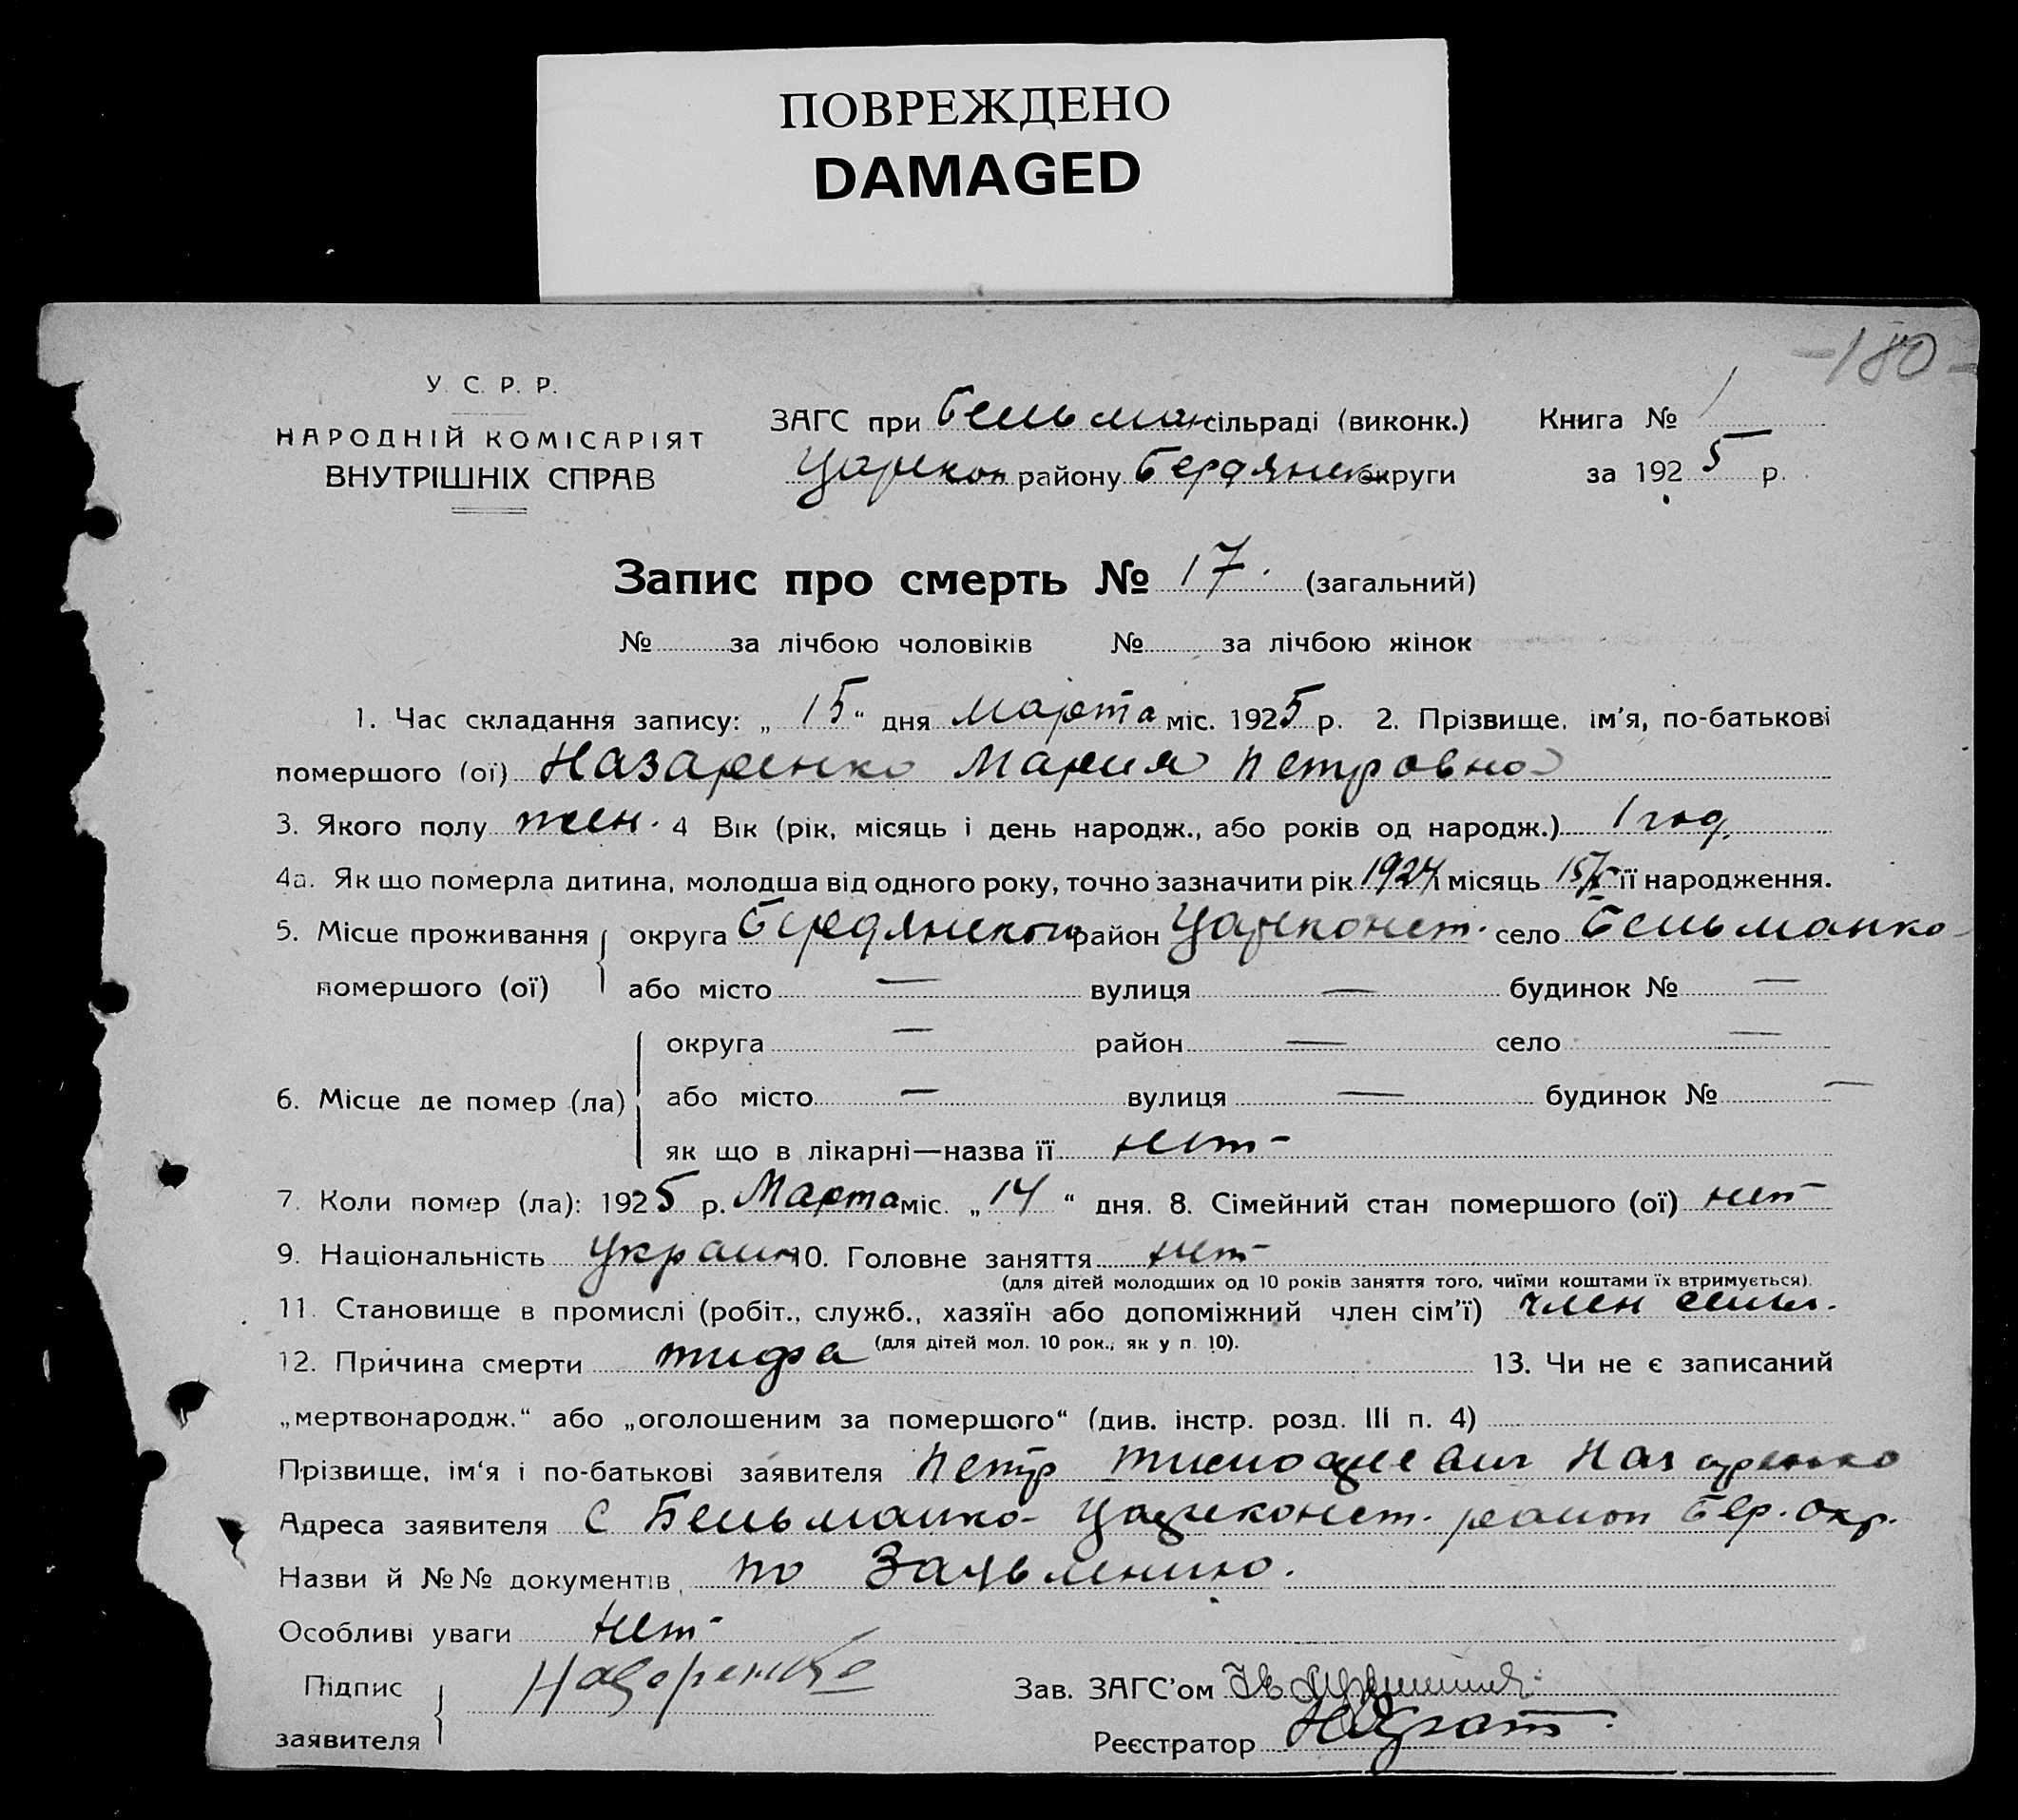 ПОВРЕЖДЕНО
DAMAGED
-180-
У. С. Р. Р.
НАРОДНІЙ КОМІСАРІЯТ
ВНУТРІШНІХ СПРАВ
ЗАГС при Бельман сільраді (виконк.) Книга № 1
Царекон району Бердянск округи за 1925 р.
Запис про смерть № 17. (загальний)
№ за лічбою чоловіків № за лічбою жінок
1. Час складання запису: „15“ дня Марта міс. 1925 р. 2. Прізвище, ім'я, по-батькові
помершого (ої) Назаренко Мария Петровна
3. Якого полу жен. 4 Вік (рік, місяць і день народж., або років од народж.) 1 год.
4а. Як що померла дитина, молодша від одного року, точно зазначити рік 1924 і місяць її народження.
5. Місце проживання округа Бердянской район Цареконст. село Бельманко-
помершого (ої) або місто — вулиця — будинок № —
округа — район — село —
6. Місце де помер (ла) або місто — вулиця — будинок № —
як що в лікарні—назва її нет-
7. Коли помер (ла): 1925 р. Марта міс. „14“ дня. 8. Сімейний стан помершого (ої) нет
9. Національність Украин 10. Головне заняття нет-
(для дітей молодших од 10 років заняття того, чиїми коштами їх втримується).
11. Становище в промислі (робіт., служб., хазяїн або допоміжний член сім'ї) член семьи.
(для дітей мол. 10 рок., як у п. 10).
12. Причина смерти тифа 13. Чи не є записаний
„мертвонародж.“ або „оголошеним за помершого“ (див. інстр. розд. III п. 4)
Прізвище, ім'я і по-батькові заявителя Петр Назаренко
Адреса заявителя С Бельманко- Цареконст. район Бер. окр.
Назви й №№ документів, по Заявлению.
Особливі уваги нет-
Підпис Назаренко Зав. ЗАГС'ом
заявителя Реєстратор